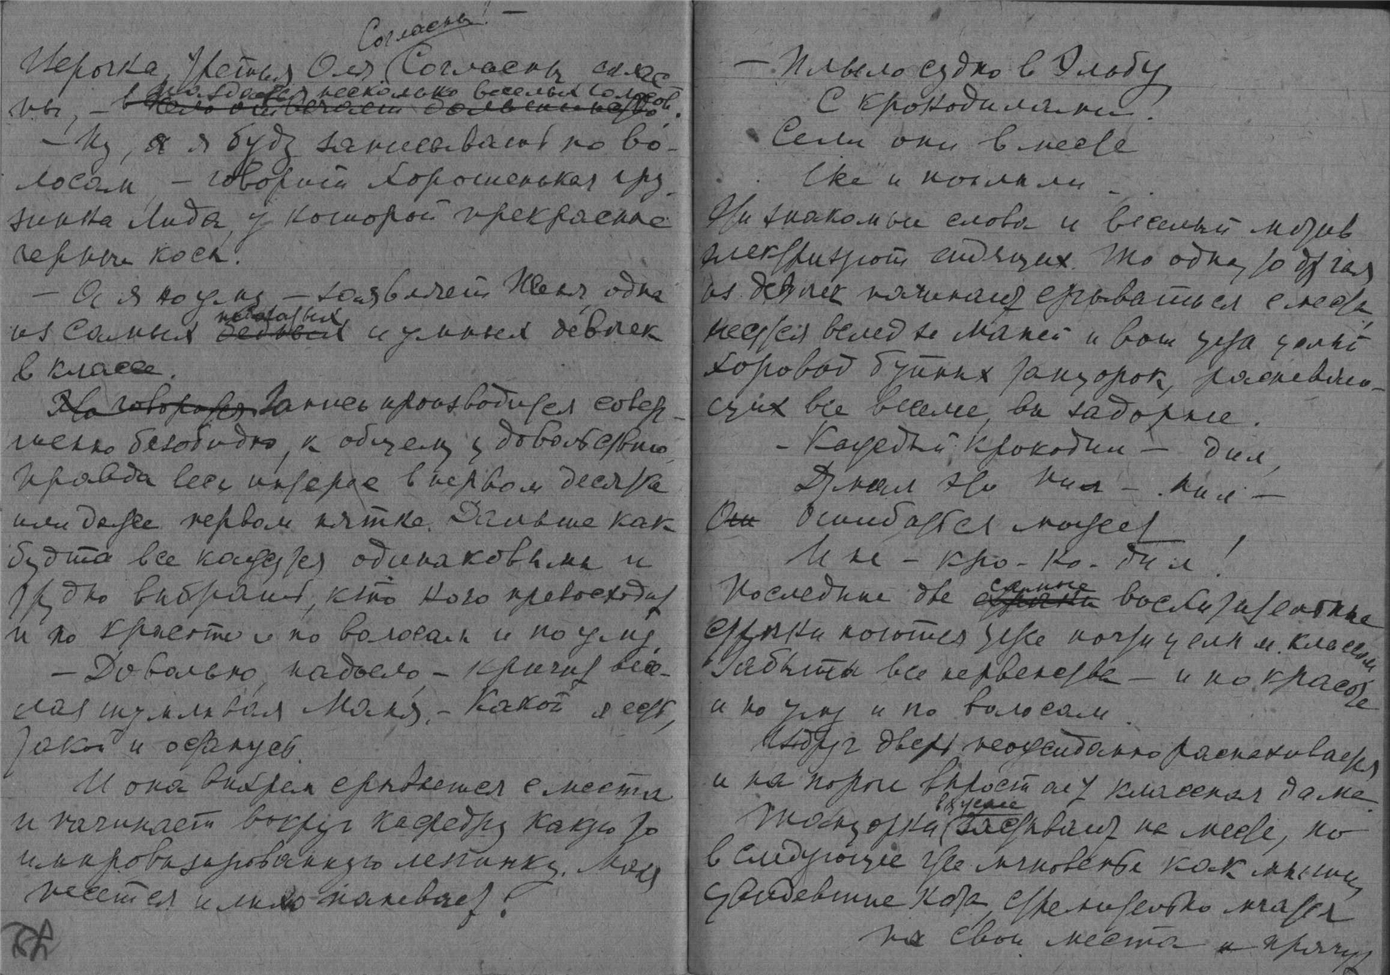 Согласны! –
Ирочка, третья Оля. Согласны, сглас
ны, – раздается несколько веселых голосов.
– Ну, а я буду записывать по во-
лосам, – говорит хорошенькая гру-
зинка Лида, у которой прекрасные
черные косы.
– А я по уму, – заявляет Женя, одна
из самых и умных девочек
в классе.
Запись производится совер-
шенно безобидно, к общему удовольствию,
правда весь интерес в первом десятке
или даже первом пятке. Дальше как
будто все кажутся одинаковыми и
трудно выбрать, кто кого превосходит
и по красоте и по волосам и по уму.
– Довольно, надоело, – кричит
шумливая Маня, – Какой я есть,
такой и останусь.
И она вихрем срывается с места
и начинает вокруг кафедры какую то
импровизированную лезгинку. Маня
несется и лихо напевает:
– Плыло судно в Эльбу
С крокодилами!
Сели они в месте
Же и поплыли
Эти знакомые слова и веселый мотив
электризуют сидящих. То одна, то другая
из девочек начинает срываться с места,
несется вслед за Маней и вот уже целый
хоровод бурных танцорок, распеваю-
щих все веселее, задорнее.
– Каждый крокодил – дил,
Думал это Нил – Нил –
Ошибаться может,
И не – кро – ко – дил!
Последние две самые восхитительные
строки поются уже почти целым классом
Забыты все первенства – и по красоте
и по уму и по волосам.
Вдруг дверь неожиданно распахивается
и на пороге вырастает классная дама.
Танцорки застывают на месте, но
в следующее же мгновенье как мыши,
увидевшие кота, стремительно мчатся
на свои места и прячут